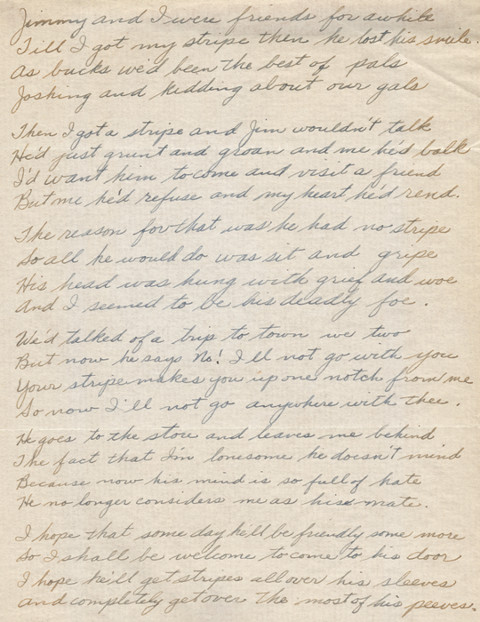 Jimmy and I were friends for awhile
Till I got my stripe then he lost his smile.
As bucks we'd been the best of pals
Joshing and kidding about our gals
Then I got a stripe and Jim wouldn't talk
He'd just grunt and groan and me he'd balk
I'd want him to come and visit a friend
But me he'd refuse and my heart he'd rend.
The reason for that was he had no stripe
So all he would do was sit and gripe
His head was hung with grief and woe
And I seemed to be his deadly foe.
We'd talked of a trip to town we two
But now he says No! I'll not go with you
Your stripe makes you up one notch from me
So now I'll not go anywhere with thee.
He goes to the store and leaves me behind
The fact that I'm lonesome he doesn't mind
Because now his mind is so full of hate
He no longer considers me as his mate.
I hope that some day he'll be friendly some more
So I shall be welcome to come to his door
I hope he'll get stripes all over his sleeves
And completely get over the most of his peeves.